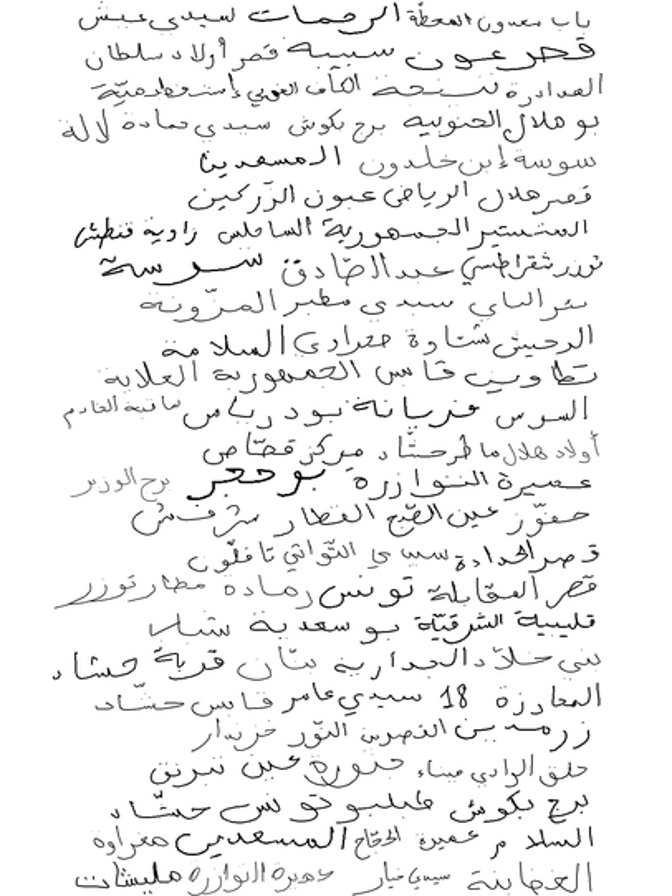 باب سعدون المحطّة الرحمات لسيدي عيش
قصر عون سبيبة قصر أولاد سلطان
الصدادرة سبيحة الكاف الغربي
بو هلال الجنوبية برج بكوش سيدي حمادة لالة
سوسة إبن خلدون المسعدين
قصر هلال الرياض عيون الزركين
المنستير الجمهورية الساحلين زاوية قنطش
توزر شقراطسي عبد الصّادق
بئر الباي سيدي مطير المزّونة
شتاوة السلامة
تطاوين قابس الجمهورية العلاية
السرس فريانة بودرياس ساقية الخادم
أولاد هلال ماطر حشّاد مركز قصّاص
عميرة التوازرة بو حجر برج الوزير
حفّوز عين الضّبع القطار
قصر الحدادة سيدي التّواتي تافلّون
قصر العقابلة تونس رمادة مطار توزر
قليبية الشرقيّة بو سعدية
بني خلاّد الجدارية بتان قرية حشاد
المعازرة 18 سيدي عامر قابس حشّاد
زرمدين القصرين النّور خزندار
حلق الوادي ميناء منورة عين تبرنق
برج بكوش طبلبو تونس حشّاد
السلام عميرة الحجّاج المسعدين مغراوة
الغضابنة سيدي خيار عميرة التوازرة مليشات